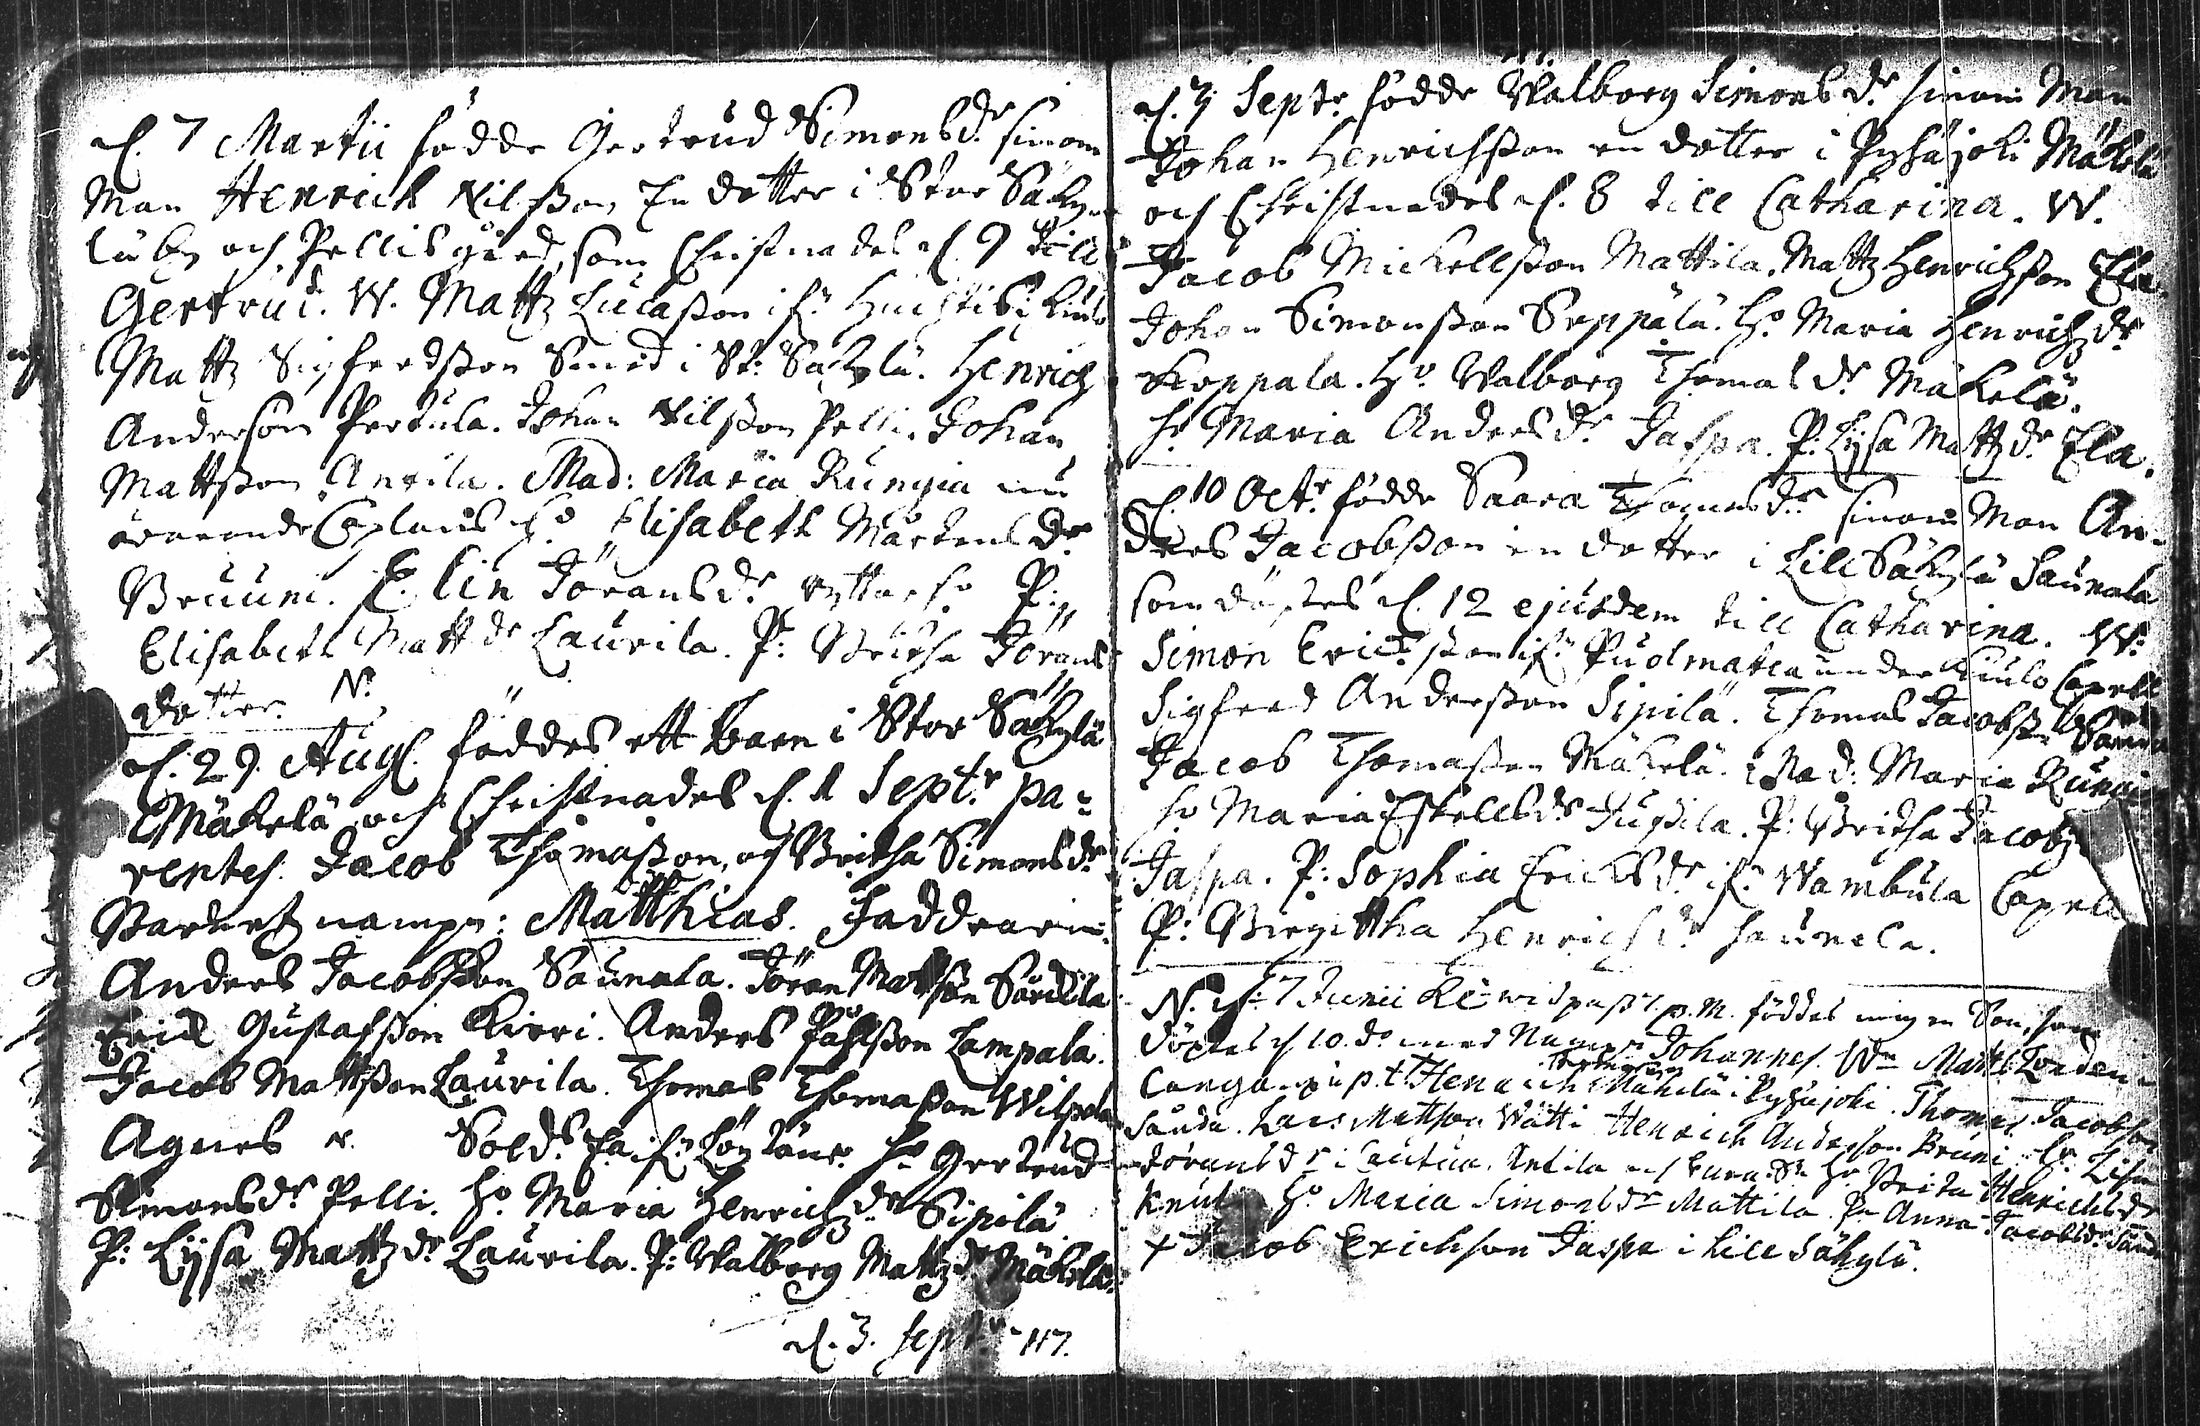 d. 7 Martii födde Gertrud Simonsdr sinom
Man Henrich Nilsson En dotter i Stor Säkyl
lä by och Pellis gård, som Christnades d. 9 till
Gertrud. W. Mattz Lucasson if:n Kiulo
Mattz Sigfredsson Smed i St: Säkylä. Henrich
Anderson Pertula. Johan Nilsson Pelli. Johan
Mattsson Anttila. Mad: Maria Rungia nu
warande Caplans h:o Elisabeth Mårtensdr
Bruuni. Elin Jöransdr ryttar h:o P:
Elisabeth Mattdr Laurila. P: Britha Jörans
dotter. N:
d. 29. Aug. föddes ett barn i Stor Säkylä
Mäkelä och Christnades d. 1 Septr. pa-
rentes: Jacob Thomasson, och Britha Simonsdr
Barnetz nampn: Matthias. Faddrarne
Anders Jacobsson Saunala. Jöran Mattsson Särkilä
Erich Gustafsson Kirri. Anders Påhlsson Lampala.
Jacob Mattsson Laurila. Thomas Thomasson Wilpola
Agnes N. Sold. h:o Gertrud
Simonsdr Pelli. h:o Maria Henrichzdr Sipilä
P: Lijsa Mattzdr Laurila. P: Walborg Mattzdr Mäkelä.
d. 3. sept
d. 7 Septr. födde Walborg Simonsdr sinom Man
Johan Henrichsson en dotter i Pyhäjoki Mäkelä
och Christnades d. 8 till Catharina. W.
Jacob Mickellsson Mattila. Mattz Henrichsson Ela.
Johan Simonsson Seppälä. h:o Maria Henrichzdr
Koppala. h:o Walborg Thomasdr Mäkelä.
h:o Maria Andersdr Jaspa. P: Lijsa Mattzdr Ela.
d. 10 Octr. födde Saara Thomasdr sinom Man An-
ders Jacobsson en dotter i Lill Säkylä Saunala
som döptes d. 12 ejusdem till Catharina. W:
Simon Ericsson if:n Puolmatca under Kiulo Capell
Sigfred Andersson Sipilä. Thomas Jacobsson
Jacob Thomasson Mäkelä. Mad: Maria Rungia
h:o Maria Eskelsdr Jussila. P: Britha Jacobz
Jaspa. P: Sophia Erichsdr if:n Wambula Capell
P: Birgittha Henrichsdr Saunala.
N. d. 7 Junii Kl. wid pass 7 p.m. föddes migen Son, som
döptes d 10. do med Nampn Johannes. Wn Matts
Henrich Thomasson Mäkilä i Pyhäjoki. Thomas Jacobson
Lars Mattson Wätti Henrich Anderson Bruni. h:o Lisa
Jöransdr i Cautua. Antila och Eura. h:o Brita Henrichsdr
Knuti h:o Maria Simonsdr Mattila. P:n Anna Jacobsdr
+ Jacob Erichson Jaspa i Lill Säkylä.